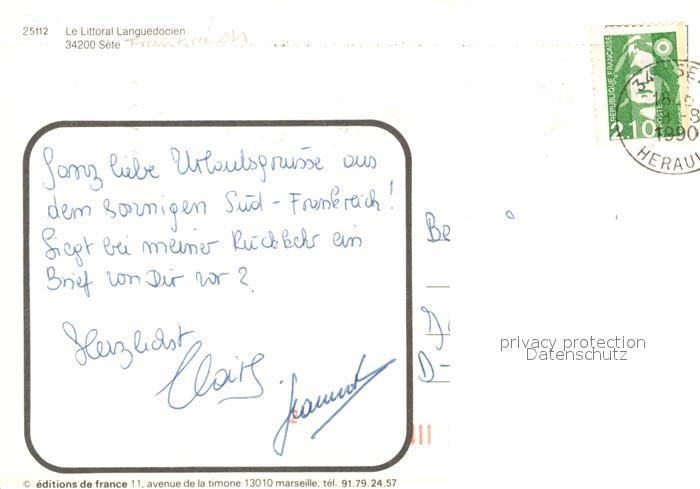 25112 Le Littoral Languedocien
34200 Sète Frankreich
RÉPUBLIQUE FRANÇAISE
2,10
POSTES
34
18
8
1990
HERAUL
Ganz liebe Urlaubsgrüsse aus
dem sonnigen Süd-Frankreich!
Liegt bei meiner Rückkehr ein
Brief von Dir vor?
Herzlichst
Be
D-
privacy protection
Datenschutz
© éditions de france 11, avenue de la timone 13010 marseille, tél. 91.79.24.57